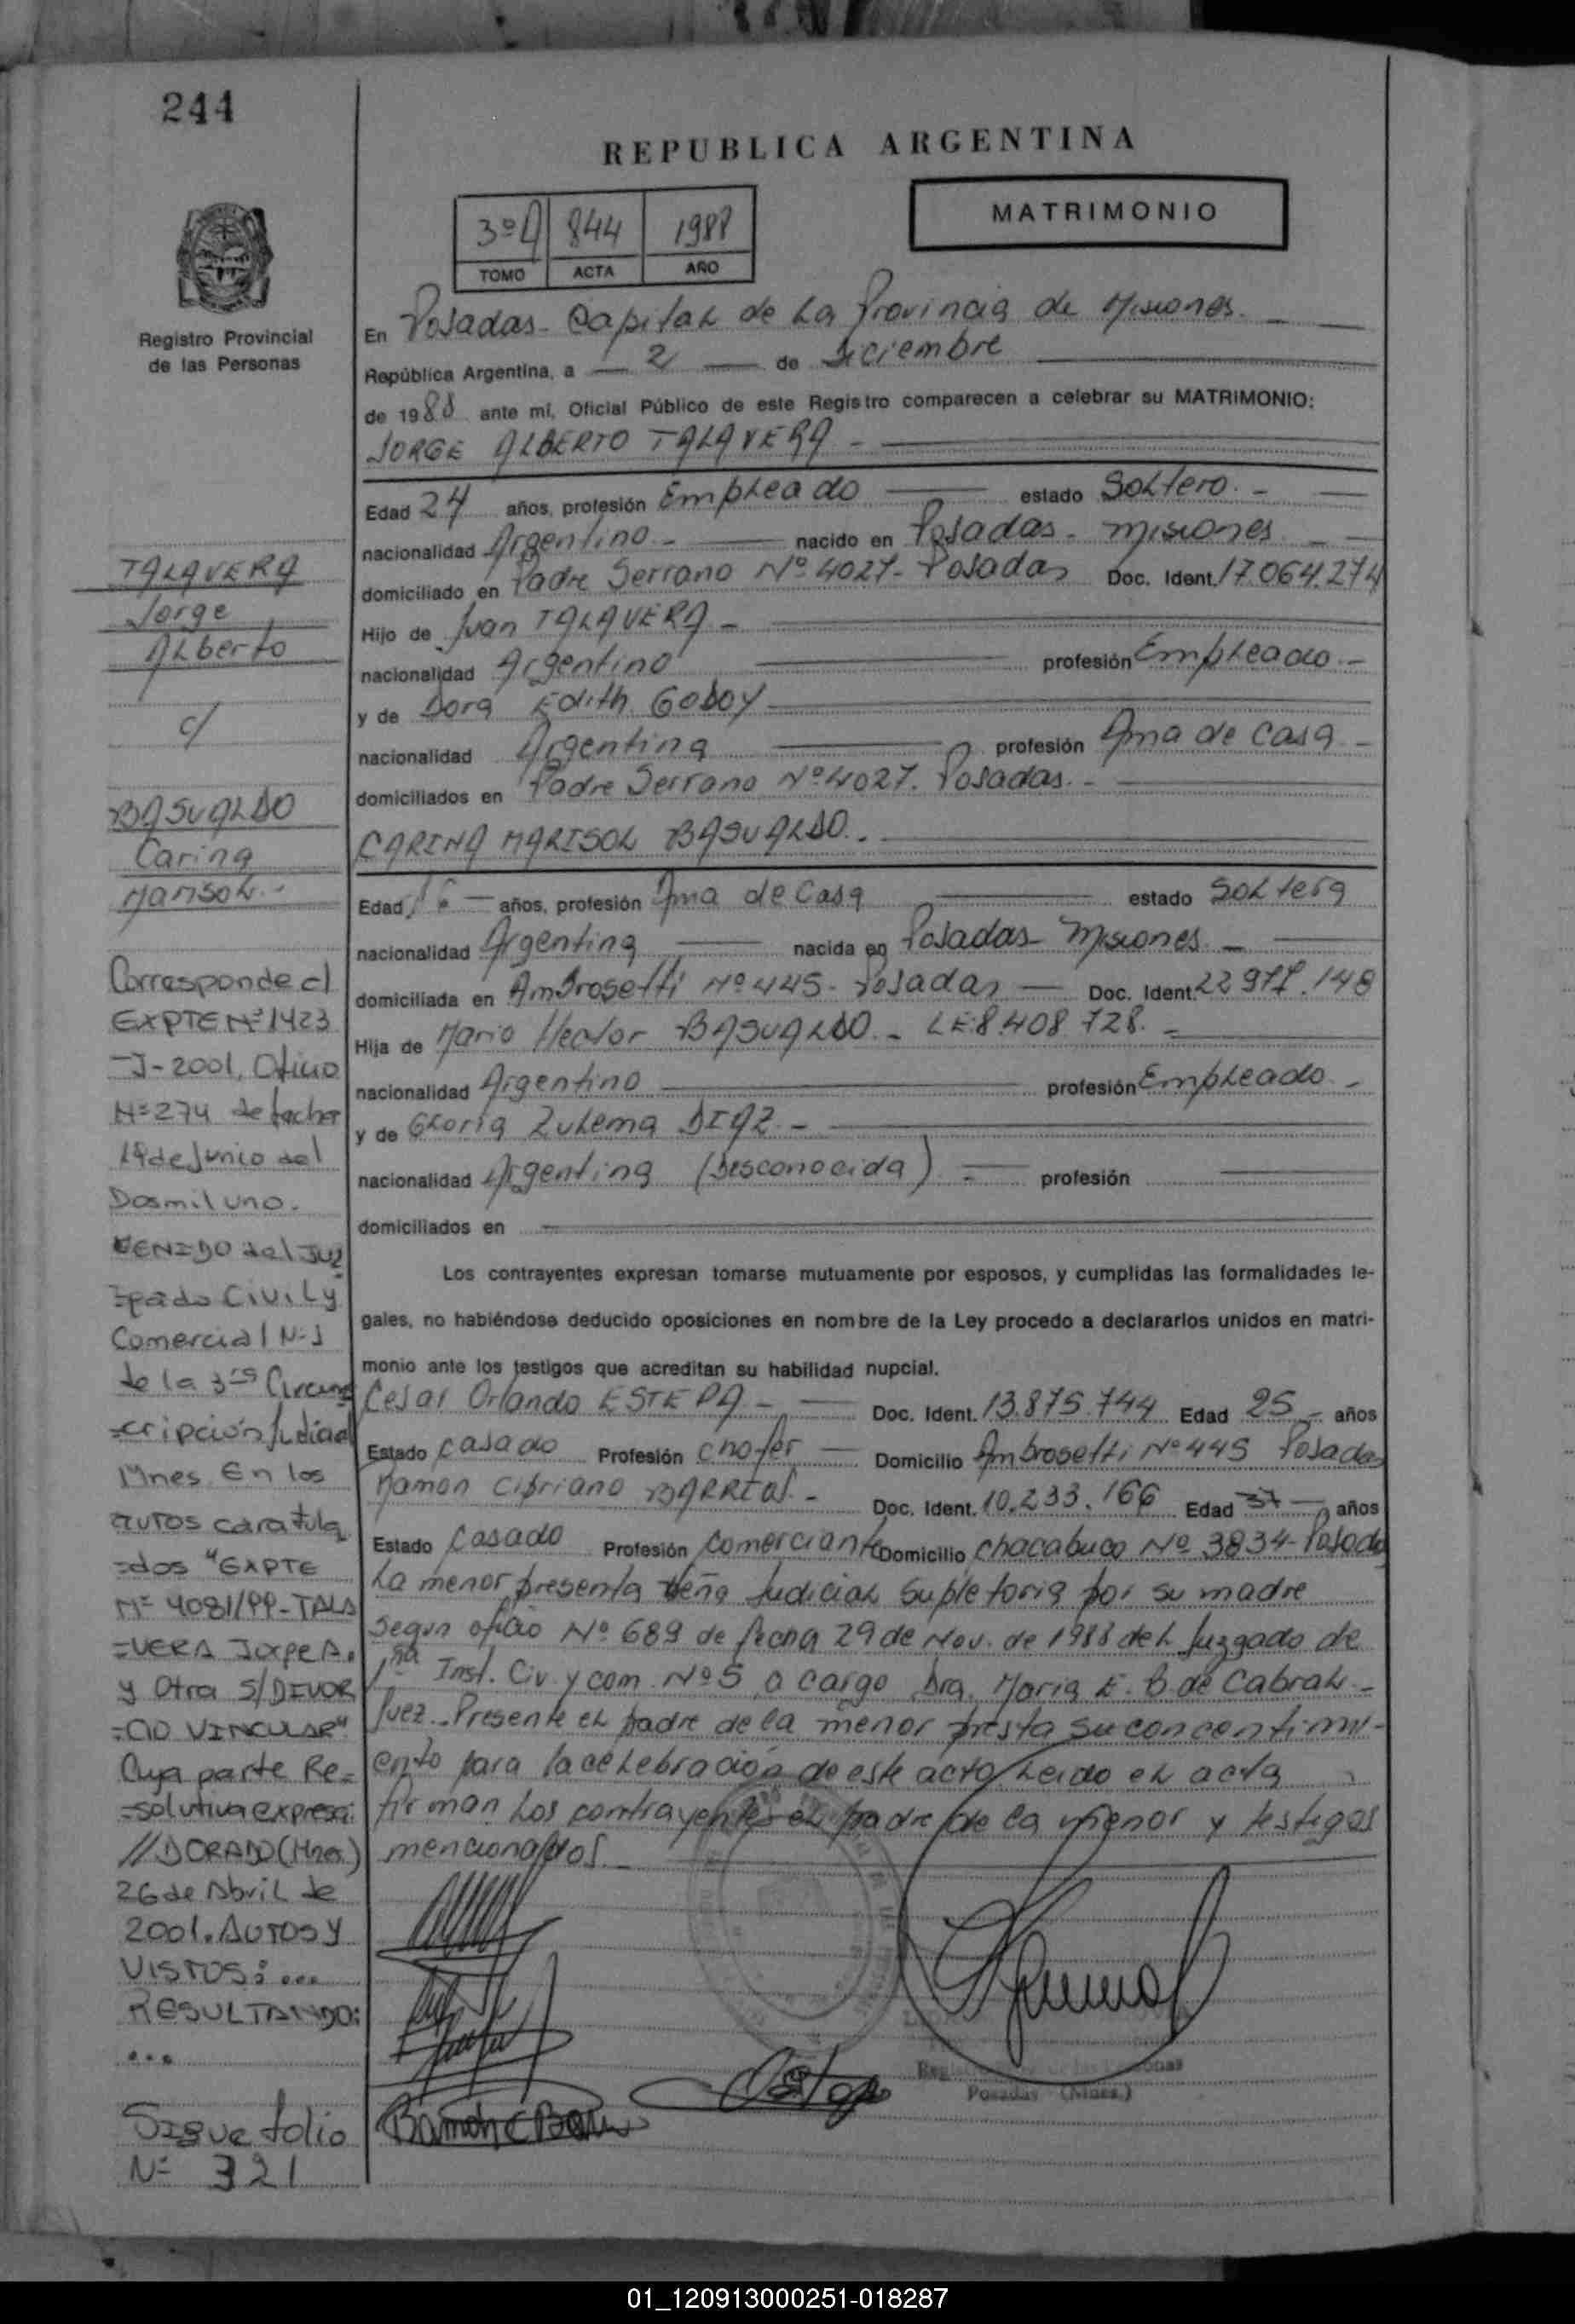 244
REPUBLICA ARGENTINA
3º A 844 1988
TOMO ACTA AÑO
MATRIMONIO
Registro Provincial
de las Personas
En Posadas - Capital de La Provincia de Misiones. -
República Argentina, a - 2 - de Diciembre
de 1988 ante mí, Oficial Público de este Registro comparecen a celebrar su MATRIMONIO:
JORGE ALBERTO TALAVERA -
Edad 24 años, profesión Empleado estado Soltero. -
nacionalidad Argentino - nacido en Posadas - Misiones -
domiciliado en Padre Serrano Nº 4027 - Posadas Doc. Ident. 17.064.274
Hijo de Juan TALAVERA -
nacionalidad Argentino profesión Empleado. -
y de Dora Edith GODOY
nacionalidad Argentina profesión Ama de Casa -
domiciliados en Padre Serrano Nº 4027. Posadas. -
CARINA MARISOL BASUALDO. -
Edad años, profesión Ama de Casa estado Soltera
nacionalidad Argentina nacida en Posadas - Misiones. -
domiciliada en Ambrosetti Nº 445 - Posadas - Doc. Ident. 22.977.148
Hija de Mario Hector BASUALDO. - LE 8.408.728. -
nacionalidad Argentino profesión Empleado. -
y de Gloria Zulema DIAZ -
nacionalidad Argentina (Desconocida). - profesión
domiciliados en
Los contrayentes expresan tomarse mutuamente por esposos, y cumplidas las formalidades le-
gales, no habiéndose deducido oposiciones en nombre de la Ley procedo a declararlos unidos en matri-
monio ante los testigos que acreditan su habilidad nupcial.
Cesar Orlando ESTEPA - Doc. Ident. 13.875.744 Edad 25 - años
Estado Casado Profesión Chofer - Domicilio Ambrosetti Nº 445 Posadas
Ramon Cipriano BARRIOS. - Doc. Ident. 10.233.166 Edad 37 - años
Estado Casado Profesión Comerciante Domicilio Chacabuco Nº 3834 - Posadas
La menor presenta Venia Judicial Supletoria por su madre
segun oficio Nº 689 de fecha 29 de Nov. de 1988 del Juzgado de
1ra Inst. Civ. y com. Nº 5 a cargo Dra. Maria E. B. de Cabral -
Juez. - Presente el padre de la menor presta su concentimi-
ento para la celebración de este acto Leido el acta
firman Los contrayentes el padre de la menor y testigos
mencionados. -
Posadas (Mnes.)
TALAVERA
Jorge
Alberto
c/
BASUALDO
Carina
Marisol. -
Corresponde c/
EXPTE Nº 1423
-J-2001, Oficio
Nº 274 de fecha
19 de Junio del
Dosmil uno.
VENIDO del JUZ
=gado Civil y
Comercial Nº 1
de la 3ra Circuns
=cripción Judicial
Mnes. En los
autos caratula
=dos "EXPTE
Nº 4081/99 - TALA
=VERA Jorge A.
y Otra S/DIVOR
=CIO VINCULAR"
Cuya parte Re=
=solutiva expresa:
//DORADO (Mnes.)
26 de Abril de
2001. AUTOS Y
VISTOS: ...
RESULTANDO:
...
Sigue folio
Nº 321
01_120913000251-018287